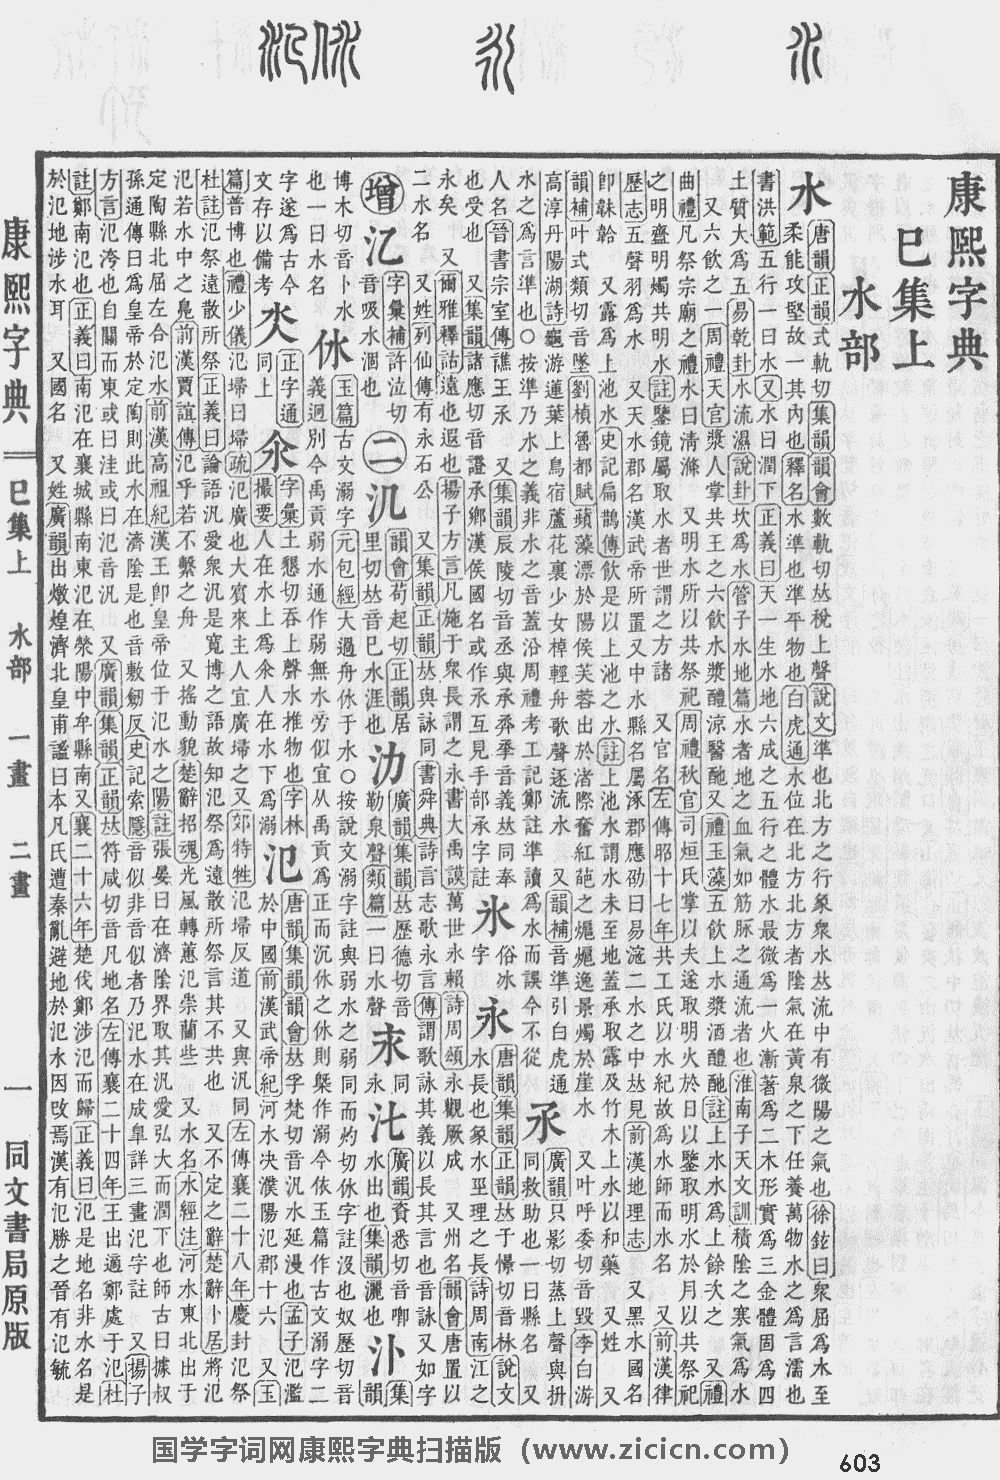 康熙字典
巳集上
水部
水
唐韻正韻式軌切集韻韻會數軌切𠀤稅上聲說文準也北方之行象衆水𠀤流中有微陽之氣也徐鉉曰衆屈爲水至
柔能攻堅故一其內也釋名水準也準平物也白虎通水位在北方北方者陰氣在黃泉之下任養萬物水之爲言濡也
書洪範五行一曰水又水曰潤下正義曰天一生水地六成之五行之體水最微爲一火漸著爲二木形實爲三金體固爲四
土質大爲五易乾卦水流濕說卦坎爲水管子水地篇水者地之血氣如筋脉之通流者也淮南子天文訓積陰之寒氣爲水
又六飮之一周禮天官漿人掌共王之六飮水漿醴涼醫酏又禮玉藻五飮上水漿酒醴酏註上水水爲上餘次之 又禮
曲禮凡祭宗廟之禮水曰清滌 又明水所以共祭祀周禮秋官司烜氏掌以夫遂取明火於日以鑒取明水於月以共祭祀
之明齍明燭共明水註鑒鏡屬取水者世謂之方諸 又官名左傳昭十七年共工氏以水紀故爲水師而水名 又前漢律
歷志五聲羽爲水 又天水郡名漢武帝所置又中水縣名屬涿郡應劭曰易滱二水之中𠀤見前漢地理志 又黑水國名
卽靺鞨 又露爲上池水史記扁鵲傳飮是以上池之水註上池水謂水未至地蓋承取露及竹木上水以和藥 又姓 又
韻補叶式類切音墜劉楨魯都賦蘋藻漂於陽侯芙蓉出於渚際奮紅葩之熀熀逸景燭於崖水 又叶呼委切音毀李白游
高淳丹陽湖詩龜游蓮葉上鳥宿蘆花裏少女棹輕舟歌聲逐流水 又韻補音準引白虎通
水之爲言準也○按準乃水之義非水之音蓋沿周禮考工記鄭註準讀爲水而誤今不從
氶
廣韻只影切蒸上聲與拼
同救助也一曰縣名 又
人名晉書宗室傳譙王氶 又集韻辰陵切音丞與承丞音義𠀤同奉
也受也 又集韻諸應切音證承鄉漢侯國名或作承互見手部承字註
氷
俗冰
字
永
唐韻集韻正韻𠀤于憬切音林說文
水長也象水巠理之長詩周南江之
永矣 又爾雅釋詁遠也遐也揚子方言凡施于衆長謂之永書大禹謨萬世永賴詩周頌永觀厥成 又州名韻會唐置以
二水名 又姓列仙傳有永石公 又集韻正韻𠀤與詠同書舜典詩言志歌永言傳謂歌詠其義以長其言也音詠又如字
增
㲸
字彙補許泣切
音吸水涸也
二
氿
韻會苟起切正韻居
里切𠀤音巳水涯也
氻
廣韻集韻𠀤歷德切音
勒泉聲類篇一曰水聲
求
同
永
㲺
廣韻資悉切音喞
水出也集韻灑也
汴
集
韻
博木切音卜水
也一曰水名
休
玉篇古文溺字元包經大過舟休于水○按說文溺字註與弱水之弱同而灼切休字註沒也奴歷切音
義迥別今禹貢弱水通作弱無水旁似宜从禹貢爲正而沉休之休則槩作溺今依玉篇作古文溺字二
字遂爲古今
文存以備考
正字通
同上
氽
字彙土懇切吞上聲水推物也字林
撮要人在水上爲氽人在水下爲溺
氾
唐韻集韻韻會𠀤孚梵切音汎水延漫也孟子氾濫
於中國前漢武帝紀河水決濮陽氾郡十六 又玉
篇普博也禮少儀氾埽曰埽疏氾廣也大賓來主人宜廣埽之又郊特牲氾埽反道 又與汎同左傳襄二十八年慶封氾祭
杜註氾祭遠散所祭正義曰論語汎愛衆汎是寬博之語故知氾祭爲遠散所祭言其不共也 又不定之辭楚辭卜居將氾
氾若水中之鳧前漢賈誼傳氾乎若不繫之舟 又搖動貌楚辭招魂光風轉蕙氾崇蘭些 又水名水經注河水東北出于
定陶縣北屈左合氾水前漢高祖紀漢王卽皇帝位于氾水之陽註張晏曰在濟陰界取其汎愛弘大而潤下也師古曰據叔
孫通傳曰爲皇帝於定陶則此水在濟陰是也音敷劒反史記索隱音似非音似者乃汜水在成皐詳三畫汜字註 又揚子
方言氾洿也自關而東或曰注或曰氾音汎 又廣韻集韻正韻𠀤符咸切音凡地名左傳襄二十四年王出適鄭處于氾杜
註鄭南氾也正義曰南氾在襄城縣南東氾在滎陽中牟縣南又襄二十六年楚伐鄭涉氾而歸正義曰氾是地名非水名是
於氾地涉水耳 又國名 又姓廣韻出燉煌濟北皇甫謐曰本凡氏遭秦亂避地於氾水因改焉漢有氾勝之晉有氾毓
康熙字典
巳集上 水部 一畫 二畫
一
同文書局原版
国学字词网康熙字典扫描版（www.zicicn.com）
603